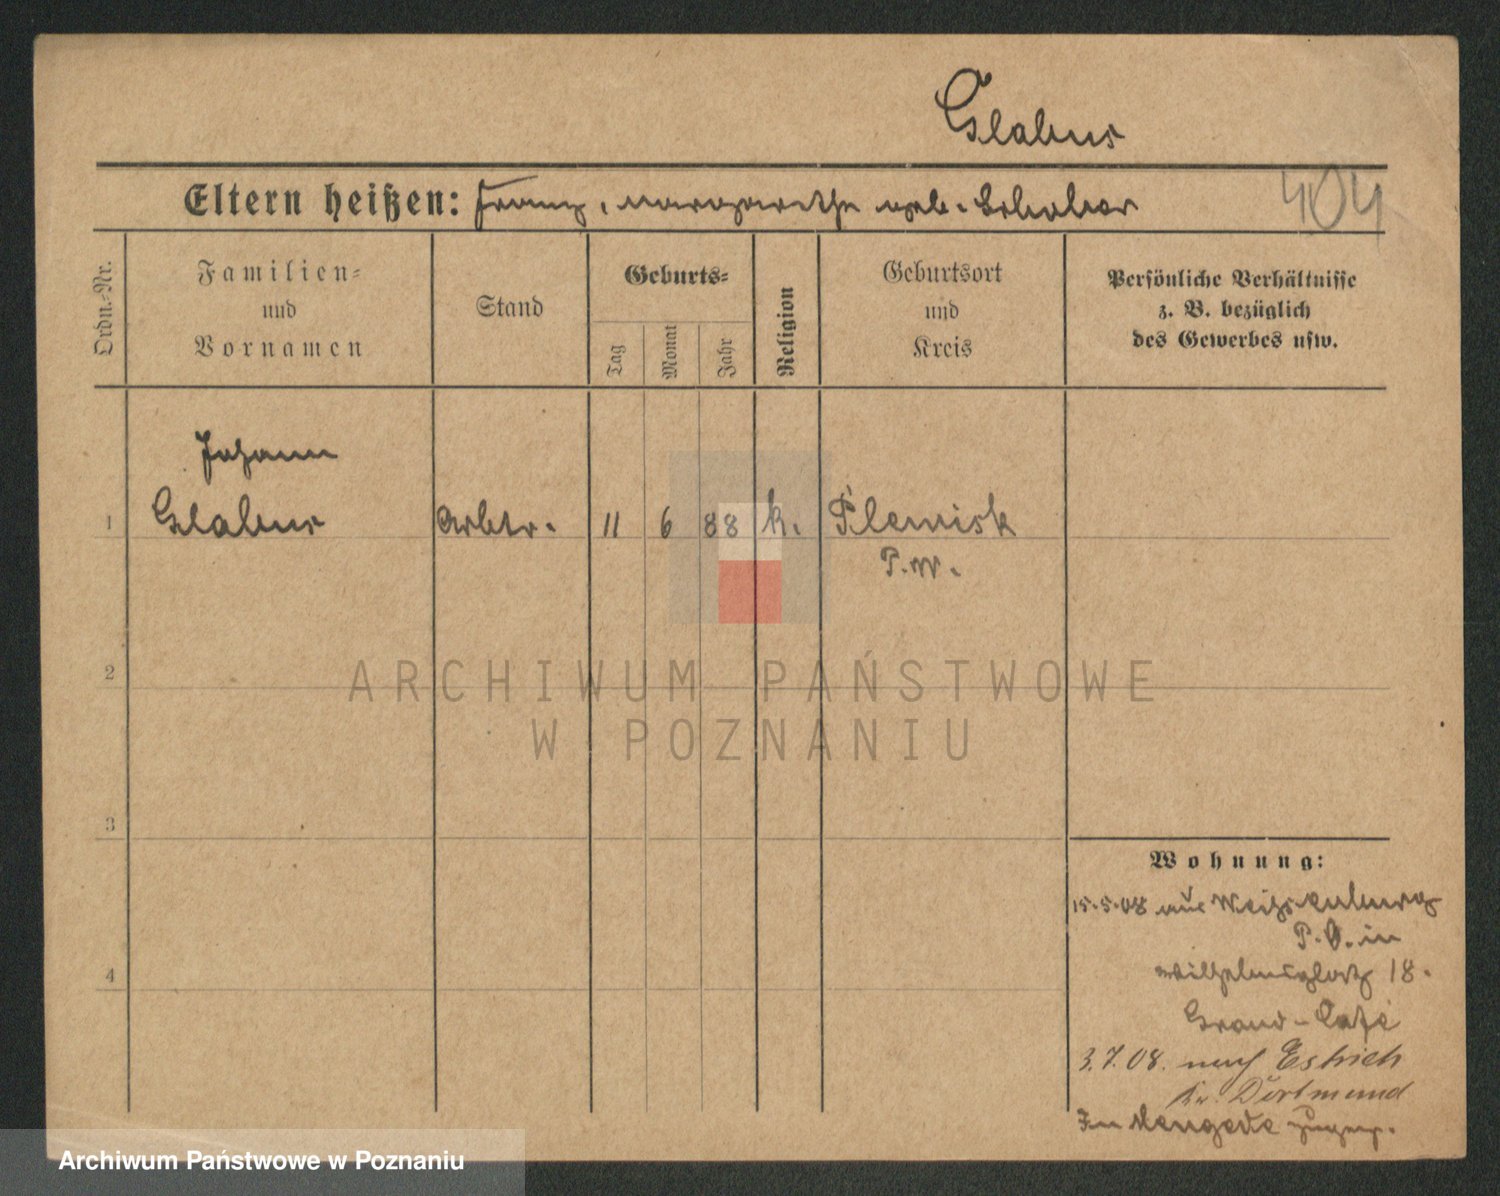 Glabus
Eltern heißen: Franz, Margarethe geb.
404
Ordn.-Nr.
Familien-
und
Vornamen
Stand
Geburts-
Tag
Monat
Jahr
Religion
Geburtsort
und
Kreis
Persönliche Verhältnisse
z. B. bezüglich
des Gewerbes usw.
Johann
1 Glabus Arbtr. 11 6 88 k. Plewisk
P.W.
2
3
4
ARCHIWUM PAŃSTWOWE
W POZNANIU
Wohnung:
15.5.08 aus
P.O. in
Wilhelmsplatz 18.
Grand-Café
3.7.08. nach Estrich
Kr. Dortmund
In Mengede zugez.
Archiwum Państwowe w Poznaniu